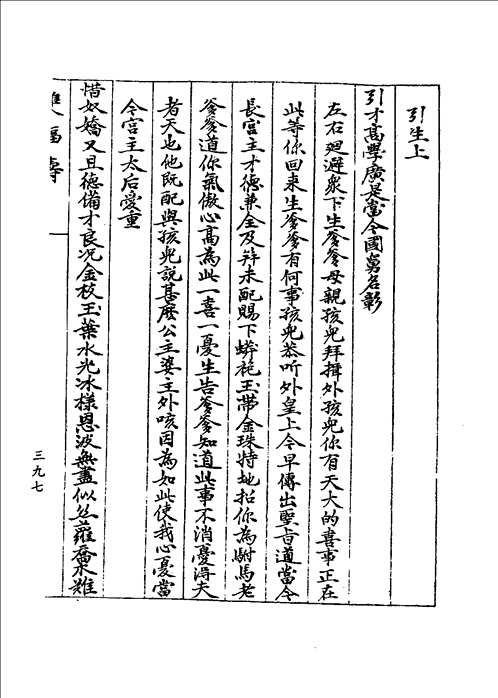 引生上
引才高學廣是當今國舅名彰
左右廻避衆下生爹爹母親孩兒拜揖外孩兒你有天大的喜事正在
此等你回來生爹爹有何事孩兒恭听外皇上今早傳出聖旨道當今
長宮主才德兼全及笄未配賜下蟒袍玉帶金珠特地招你為駙馬老
爹爹道你氣傲心高為此一喜一憂生告爹爹知道此事不消憂得夫
者天也他既配與孩兒說甚麽公主婆主外咳因為如此使我心憂當
令宫主太后愛重
惜奴嬌又且德備才良况金枝玉葉水光冰樣恩波無盡似丝蘿喬木难
福壽
三九七